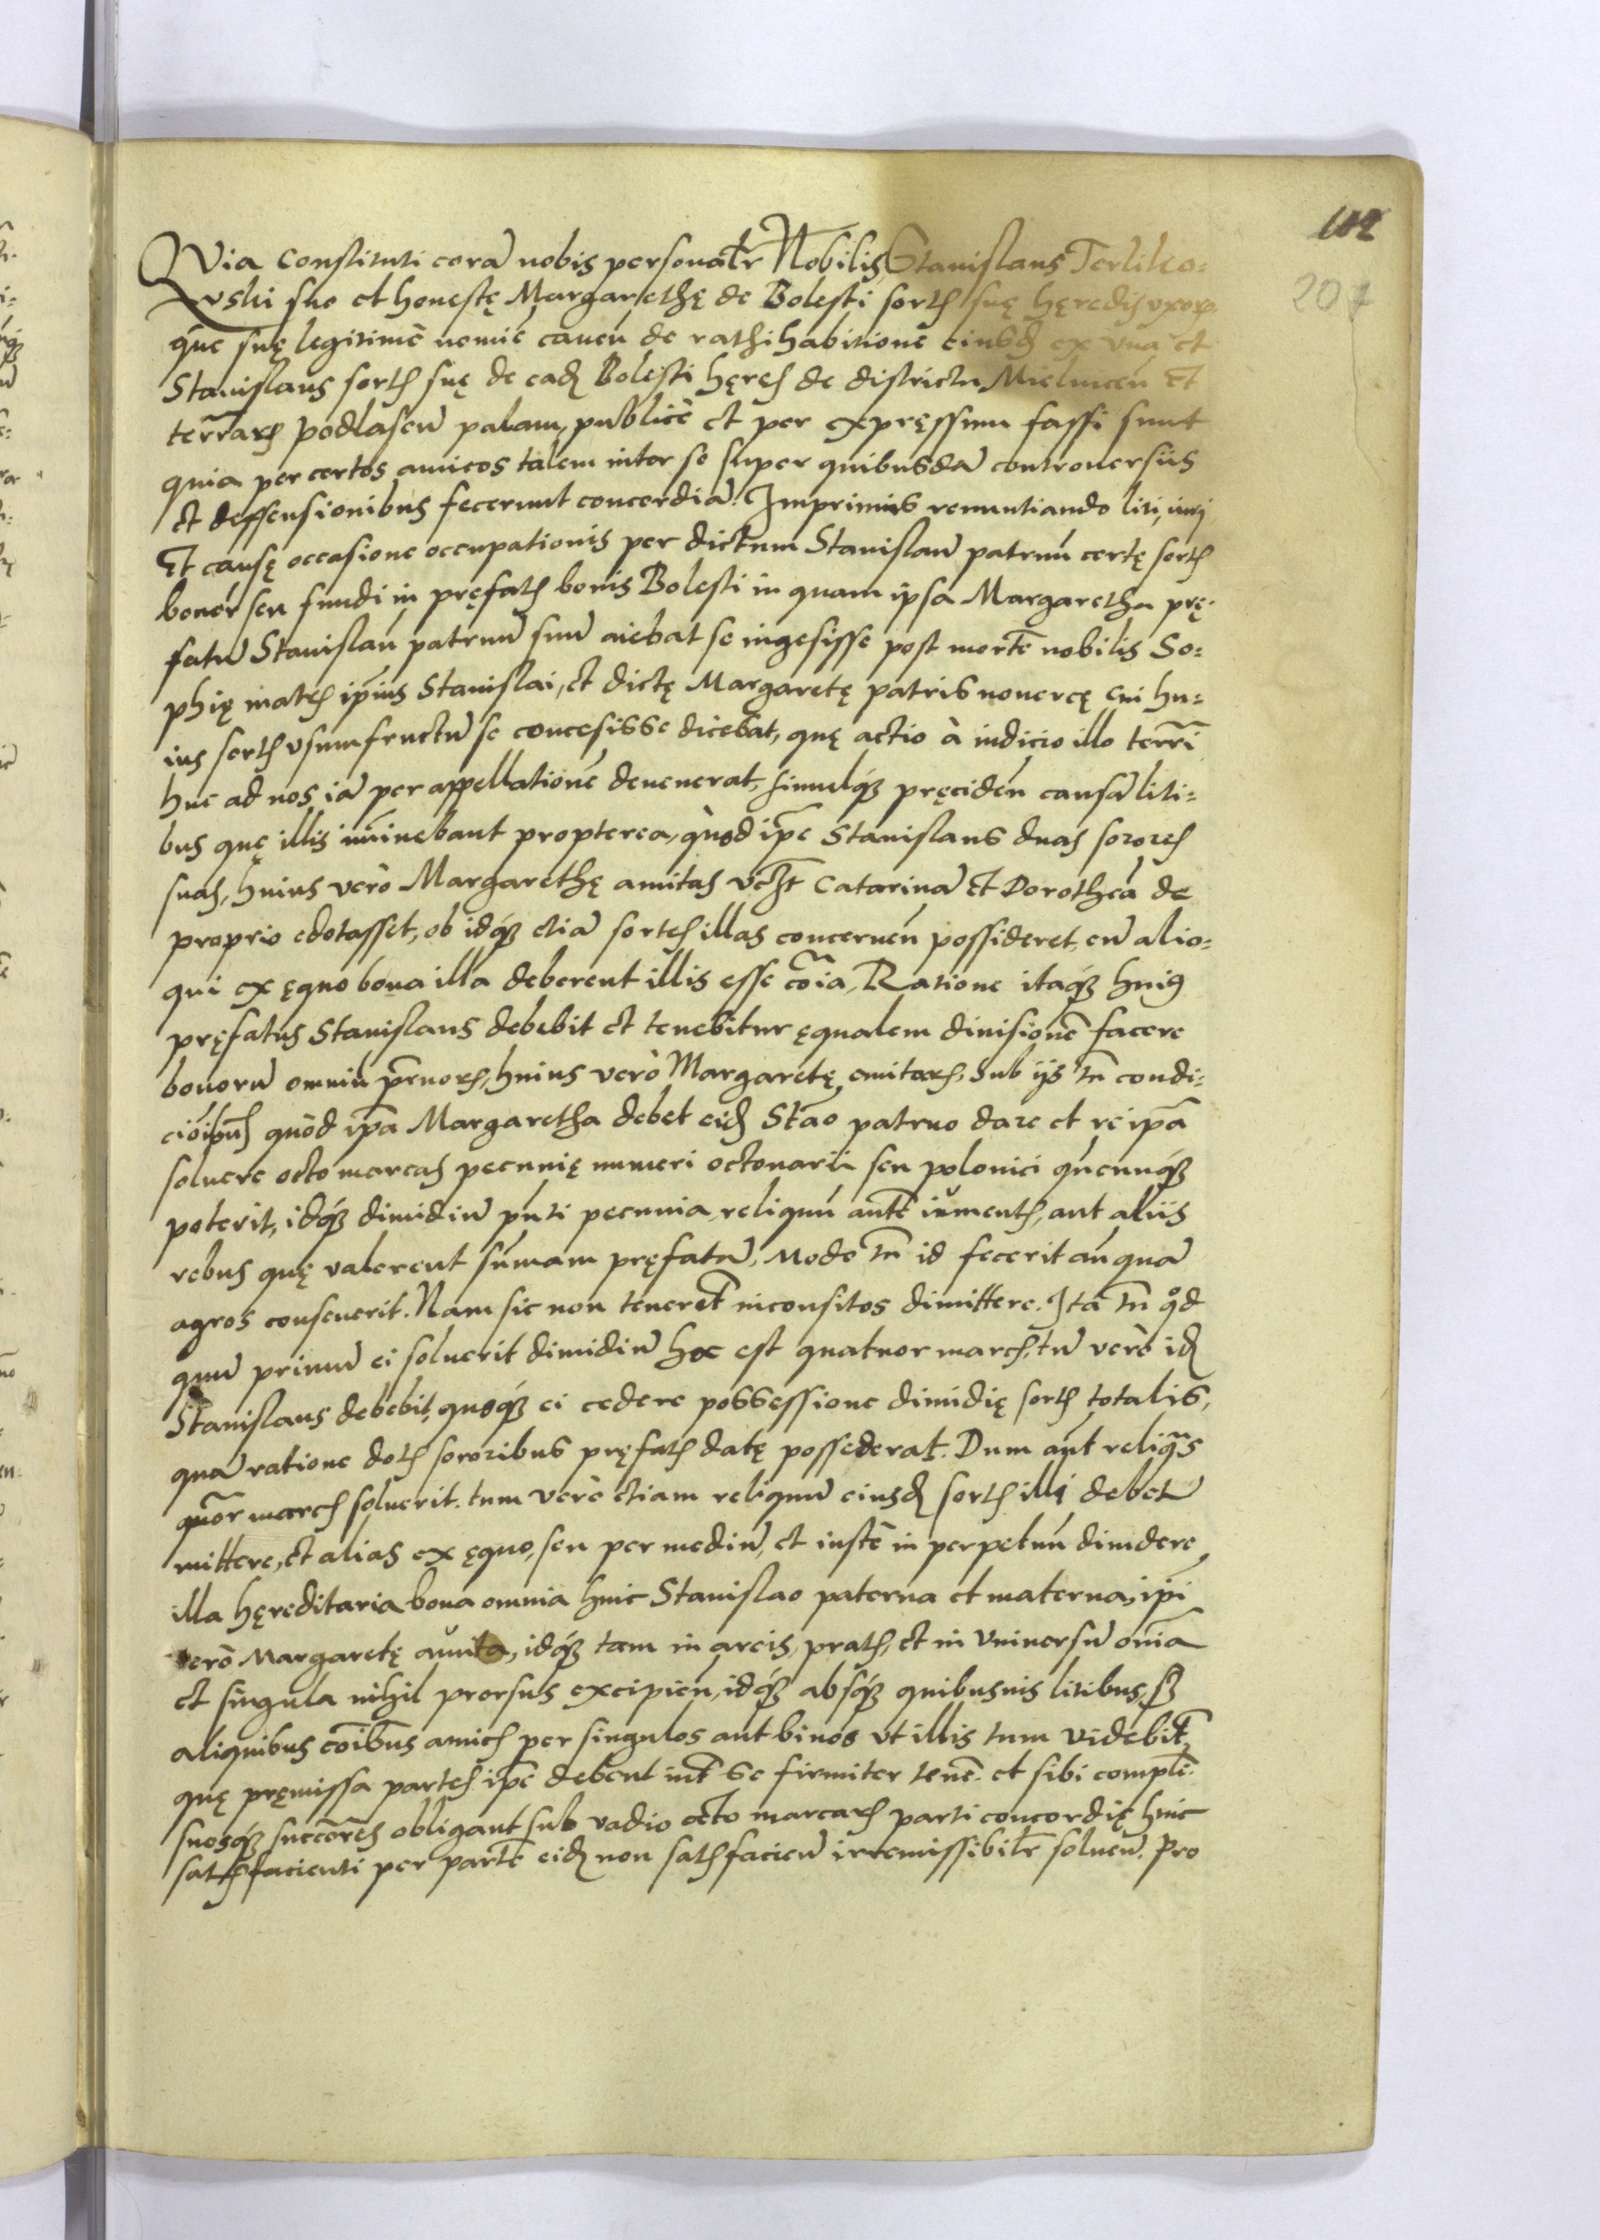 102
207
QVia Constituti corã nobis personalr̃ Nobilis Stanislaus Terliko-
vski suo et honestę Margarethę de Bolesti sortis suę hęredis vxoris-
que suę legitimę nomie caveñ de rathihabitione eiusd ex vna et
Stanislaus sortis suę de ead Bolesti hęres de districtu Mielniceñ et
terrarum Podlaseñ palam, publicè et per expręssum fassi sunt
quia per certos amicos talem inter se super quibusdã controuersiis
et deffensionibus fecerunt concordiã. Imprimis renuntiando liti, iuri
Et causę occasione occupationis per dictum Stanislaũ patruũ certę sortis
bonor̃ seu fundi in pręfatis bonis Bolesti in quam ipsa Margaretha prę-
fatũ Stanislaũ patruũ suũ aiebat se ingesisse post mortẽ nobilis So-
phię matris ipius Stanislai, et dictę Margaretę patris nouercę cui hu-
ius sortis vsumfructũ se concesisse dicebat, quę actio à iudicio illo terrĩ
huc ad nos iã per appellationẽ deuenerat, simulq3 pręcideñ causã liti-
bus quę illis imminebant propterea, quòd ipe Stanislaus duas sorores
suas, huius verò Margarethę amitas vcz̃t Catarinã Et Dorotheã de
proprio edotasset, ob idq3 etiã sortes illas concerneñ possideret, cũ alio-
qui ex ęquo bona illa deberent illis esse cõia, Ratione itaq3 huius
pręfatus Stanislaus debebit et tenebitur ęqualem diuisionẽ facere
bonorũ omniũ pruorum, huius verò Margaretę amitarum, sub ijs tñ condi-
cioibus quòd ipã Margaretha debet eid Stão patruo dare et re ipã
soluere octo marcas pecunię numeri octonarii seu polonici quẽcuq3
poterit, idq3 dimidiũ pñti pecunia, reliquũ autẽ iumentis, aut aliis
rebus quę valerent sũmam pręfatã, Modo tñ id fecerit añ quã
agros conseuerit. Nam sic non teneret inconsitos dimittere. Ita tñ qd
quũ primũ ei soluerit dimidiũ hoc est quatuor marcis, tũ verò id
Stanislaus debebit, quoq3 ei cedere possessione dimidię sortis totalis,
quã ratione dotis sororibus pręfatis datę possederat. Dum aut reliqas
quor marcis soluerit, tum verò etiam reliquũ eiusd sortis illi debet
mittere, et alias ex ęquo, seu per mediũ, et iustè in perpetuũ diuidere
illa hęreditaria bona omnia huic Stanislao paterna et materna, ipi
verò Margaretę auita, idq3 tam in areis, pratis, et in vniuersũ oñia
et singula nihil prorsus excipieñ, idq3 absq3 quibusuis litibus, sz
aliquibus cõibus amicis per singulos aut binos vt illis tum videbit,
quę pręmissa partes ipe debent int se firmiter teneñ. et sibi compleñ.
suosq3 succores obligant sub vadio octo marcarum parti concordię huic
satisfacienti per partẽ eid non satisfacieñ irremissibilr̃ solueñ. Pro